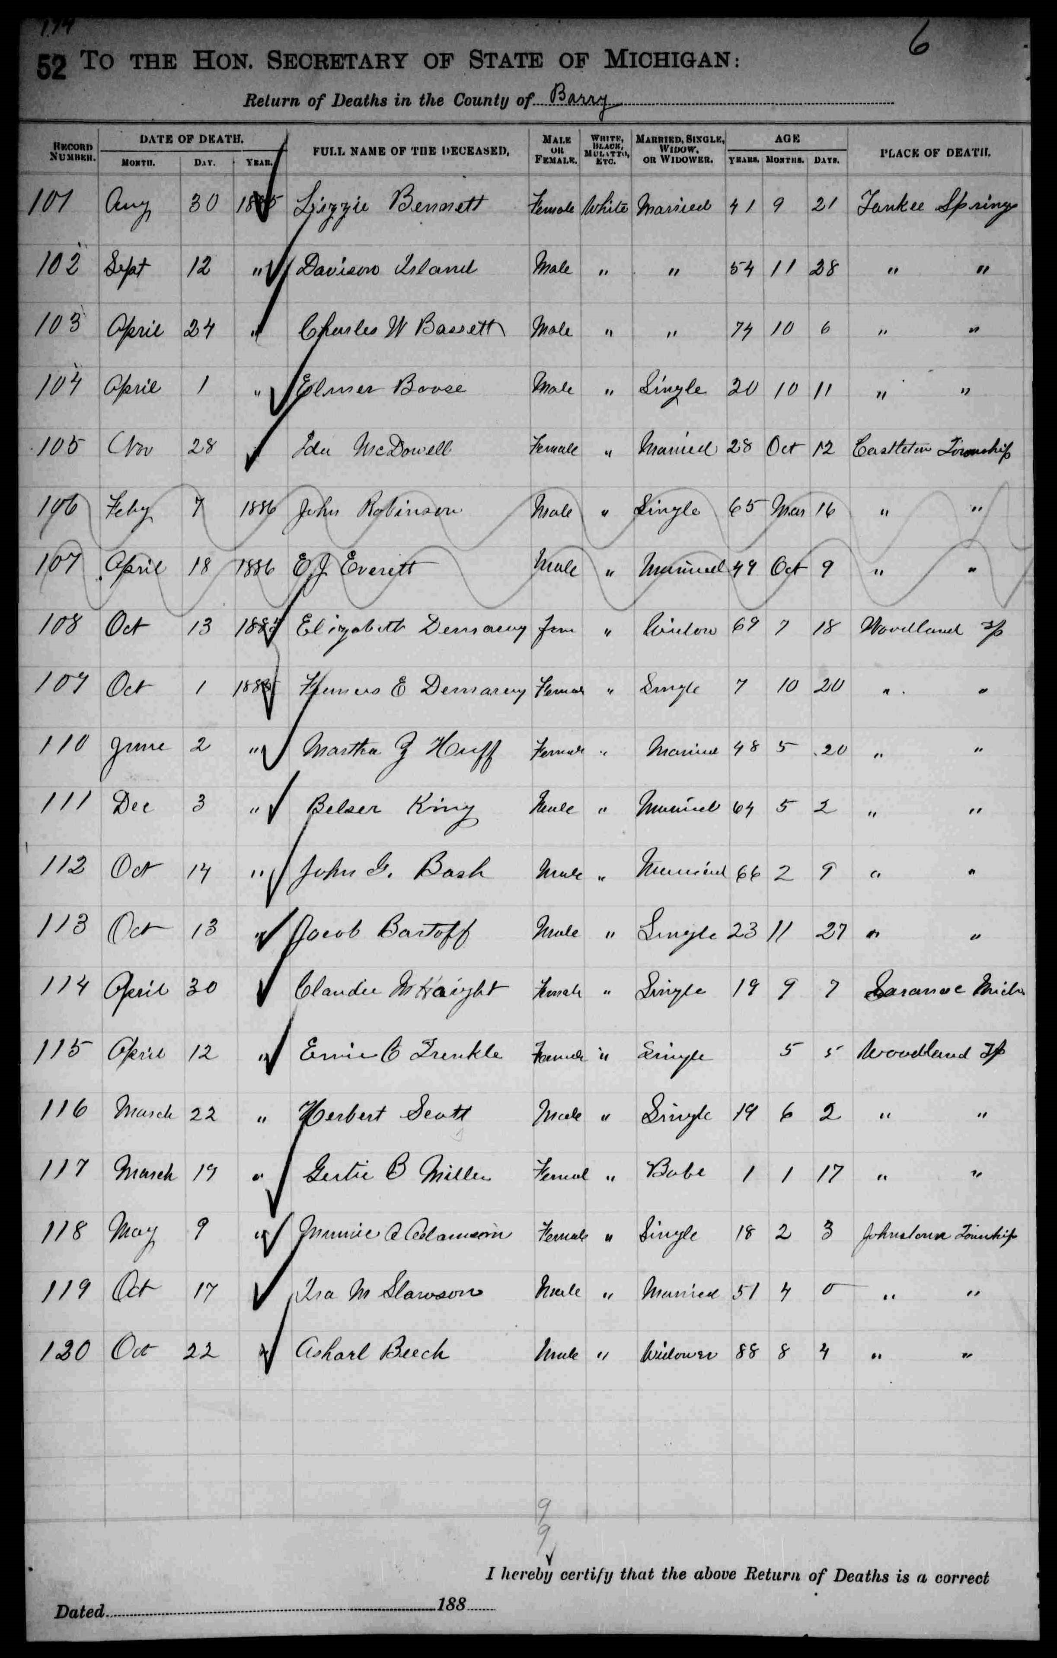 174
6
52 TO THE HON. SECRETARY OF STATE OF MICHIGAN:
Return of Deaths in the County of Barry
RECORD NUMBER. DATE OF DEATH. MONTH. DAY. YEAR. FULL NAME OF THE DECEASED, MALE OR FEMALE. WHITE, BLACK, MULATTO, ETC. MARRIED, SINGLE, WIDOW, OR WIDOWER. AGE YEARS. MONTHS. DAYS. PLACE OF DEATH.
101 Aug 30 1885 Lizzie Bennett Female White Married 41 9 21 Yankee Springs
102 Sept 12 " Davison Island Male " " 54 11 28 " "
103 April 24 " Charles W Bassett Male " " 74 10 6 " "
104 April 1 " Elmer Boose Male " Single 20 10 11 " "
105 Nov 28 Ida McDowell Female " Married 28 Oct 12 Castleton Township
106 Feby 7 1886 John Robinson Male " Single 65 Mar 16 " "
107 April 18 1886 E J Everett Male " Married 49 Oct 9 " "
108 Oct 13 188 Elizabeth Demarey Fem " Widow 69 7 18 Woodland Tp
109 Oct 1 1885 E Demarey Female Single 7 10 20 " "
110 June 2 " Martha Huff Female " Married 48 5 20 " "
111 Dec 3 " Belser King Male " Married 64 5 2 " "
112 Oct 14 " John G. Bash Male " Married 66 2 9 " "
113 Oct 13 " Jacob Bartoff Male " Single 23 11 27 " "
114 April 30 Claudie Haight Female " Single 19 9 7 Saranac Mich
115 April 12 " C Trenkle Female " Single 5 5 Woodland Tp
116 March 22 " Herbert Scott Male " Single 19 6 2 " "
117 March 19 " Gertie B Miller Female " Babe 1 1 17 " "
118 May 9 " Minnie A Adamson Female " Single 18 2 3 Johnstown Township
119 Oct 17 Ira M Slawson Male " Married 51 4 0 " "
120 Oct 22 " Asharl Beech Male " Widower 88 8 4 " "
9
9
I hereby certify that the above Return of Deaths is a correct
Dated 188